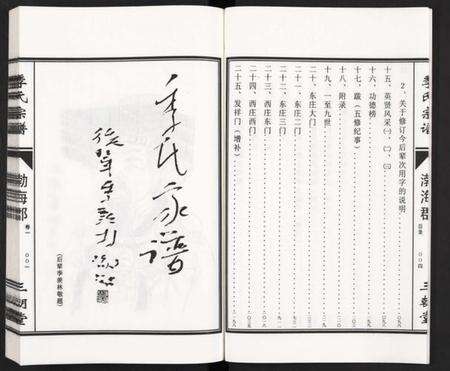 2、关于修订今后辈次用字的说明
十五、英贤风采㈠、㈡、㈢
十六、功德榜
十七、跋（五修纪事）
十八、附录
十九、一至九世
二十、东庄大门
二十一、东庄二门
二十二、东庄三门
二十三、西庄东门
二十四、西庄西门
二十五、发祥门（增补）
季氏宗谱
渤海郡
目录
〇〇四
三朝堂
季氏家谱
后辈季羡林敬题
（后辈季羡林敬题）
季氏宗谱
渤海郡
卷一
〇〇一
三朝堂